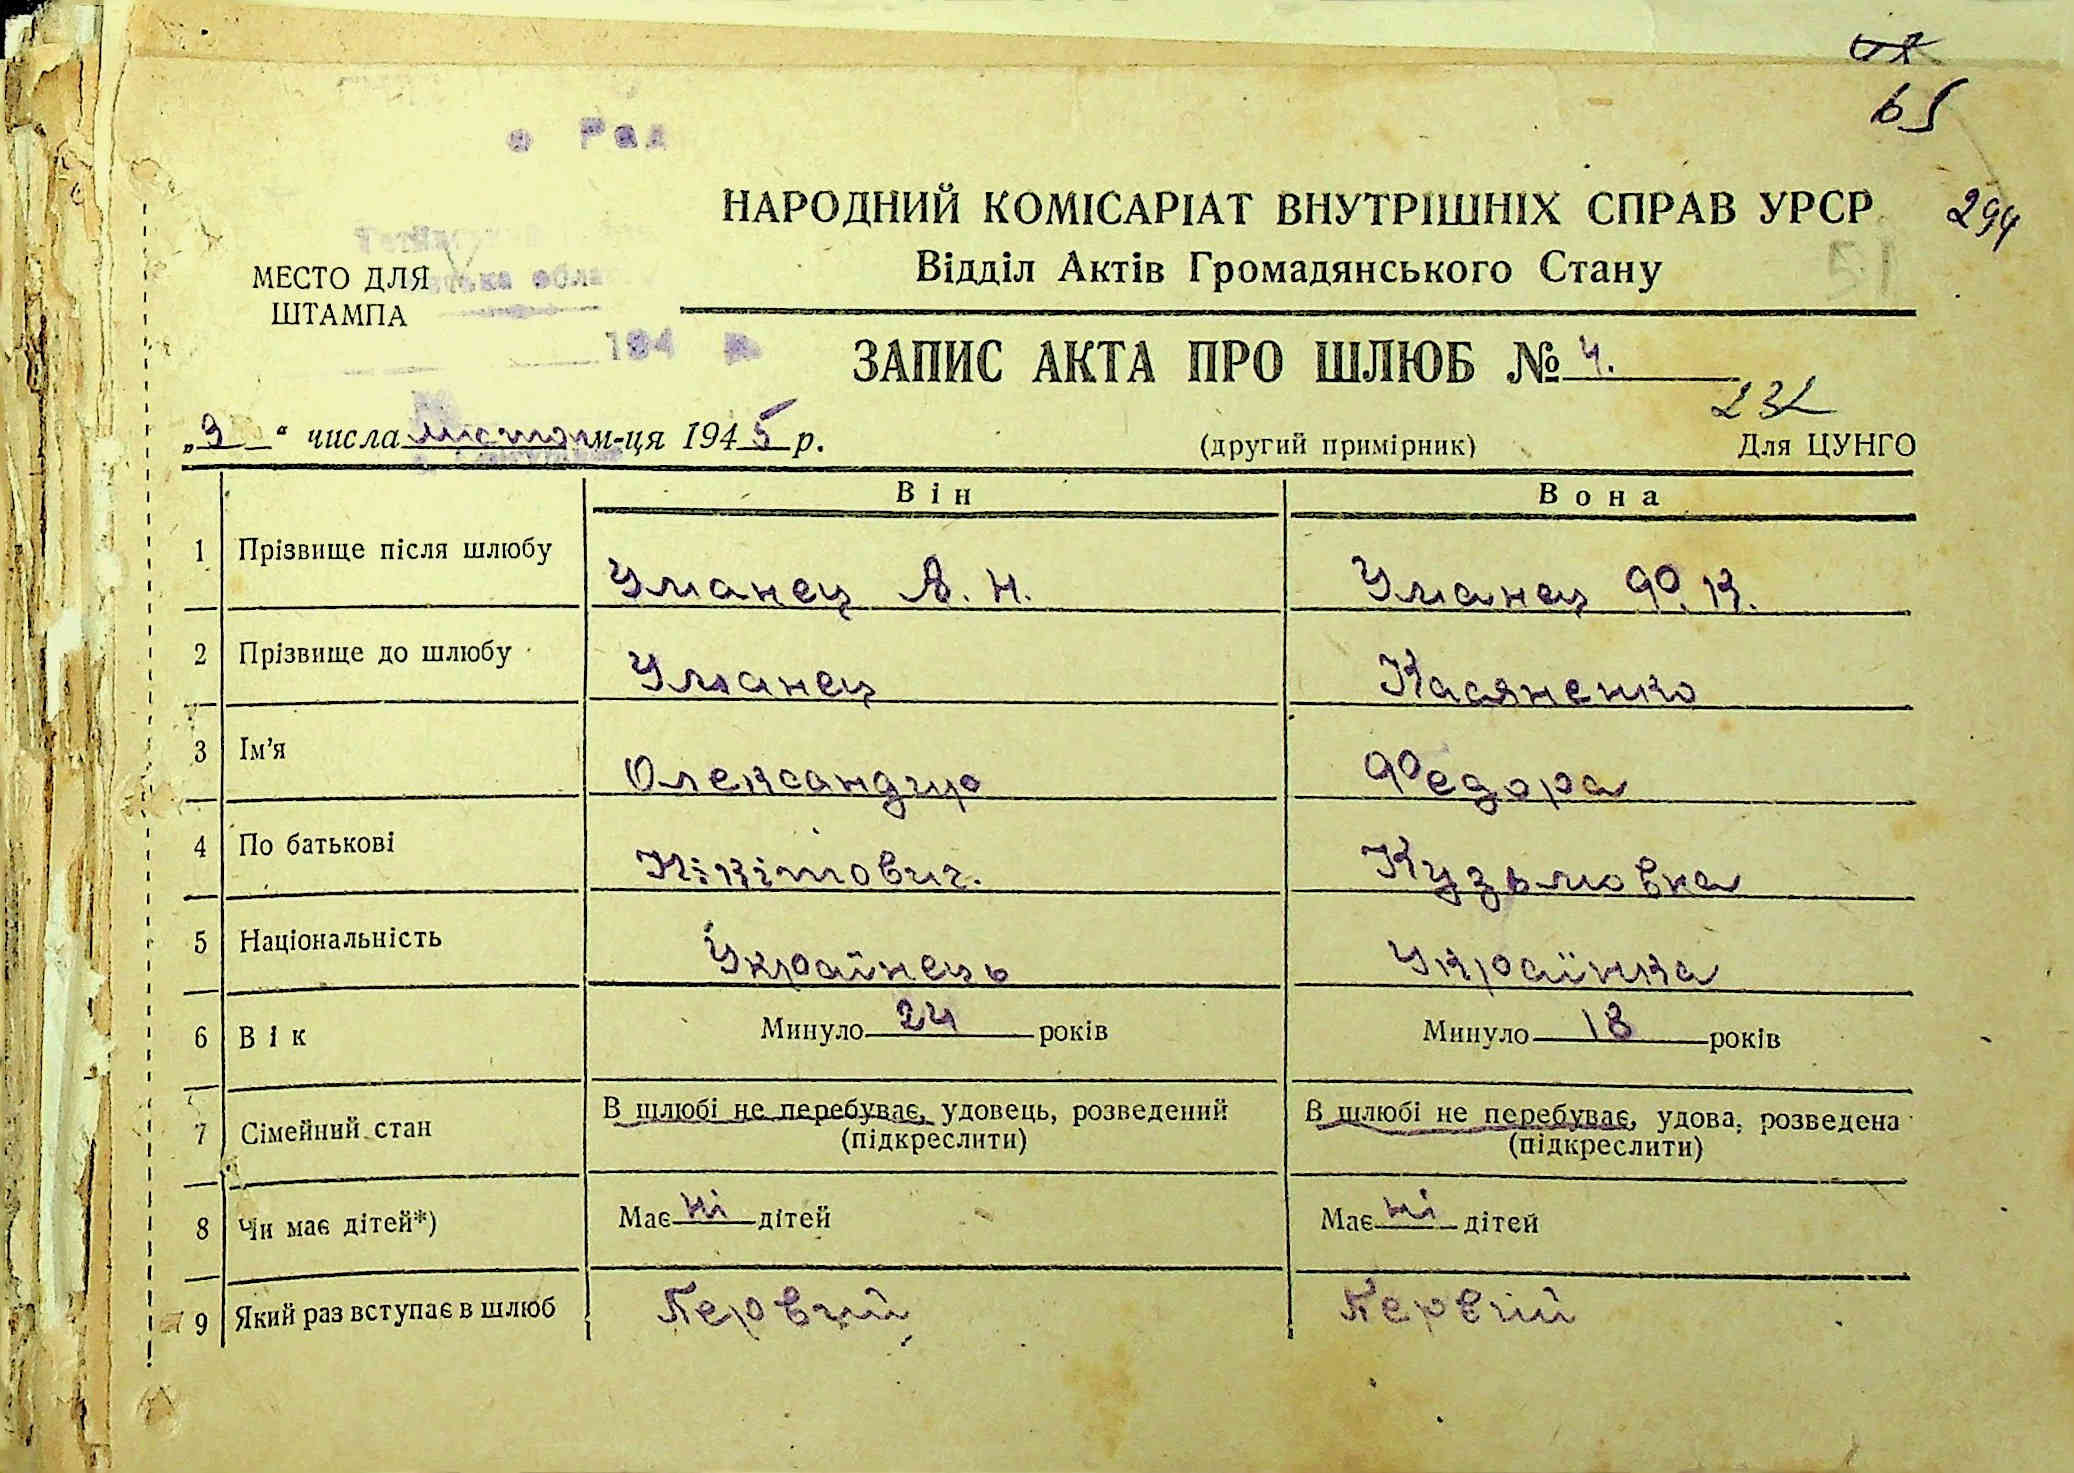 65
НАРОДНИЙ КОМІСАРІАТ ВНУТРІШНІХ СПРАВ УРСР 294
Відділ Актів Громадянського Стану
МЕСТО ДЛЯ
ШТАМПА
194
ЗАПИС АКТА ПРО ШЛЮБ № 4.
232
„3" числа листопа м-ця 1945 р. (другий примірник) Для ЦУНГО
Він Вона
1 Прізвище після шлюбу Уманец А. Н. Уманец Ф. К.
2 Прізвище до шлюбу Уманец Касяненко
3 Ім'я Олександр Федора
4 По батькові Нікітович. Кузьмовна
5 Національність Українець Українка
6 Вік Минуло 24 років Минуло 18 років
7 Сімейний стан В шлюбі не перебуває, удовець, розведений В шлюбі не перебуває, удова, розведена
(підкреслити) (підкреслити)
8 Чи має дітей*) Має ні дітей Має ні дітей
9 Який раз вступає в шлюб Первий Первій